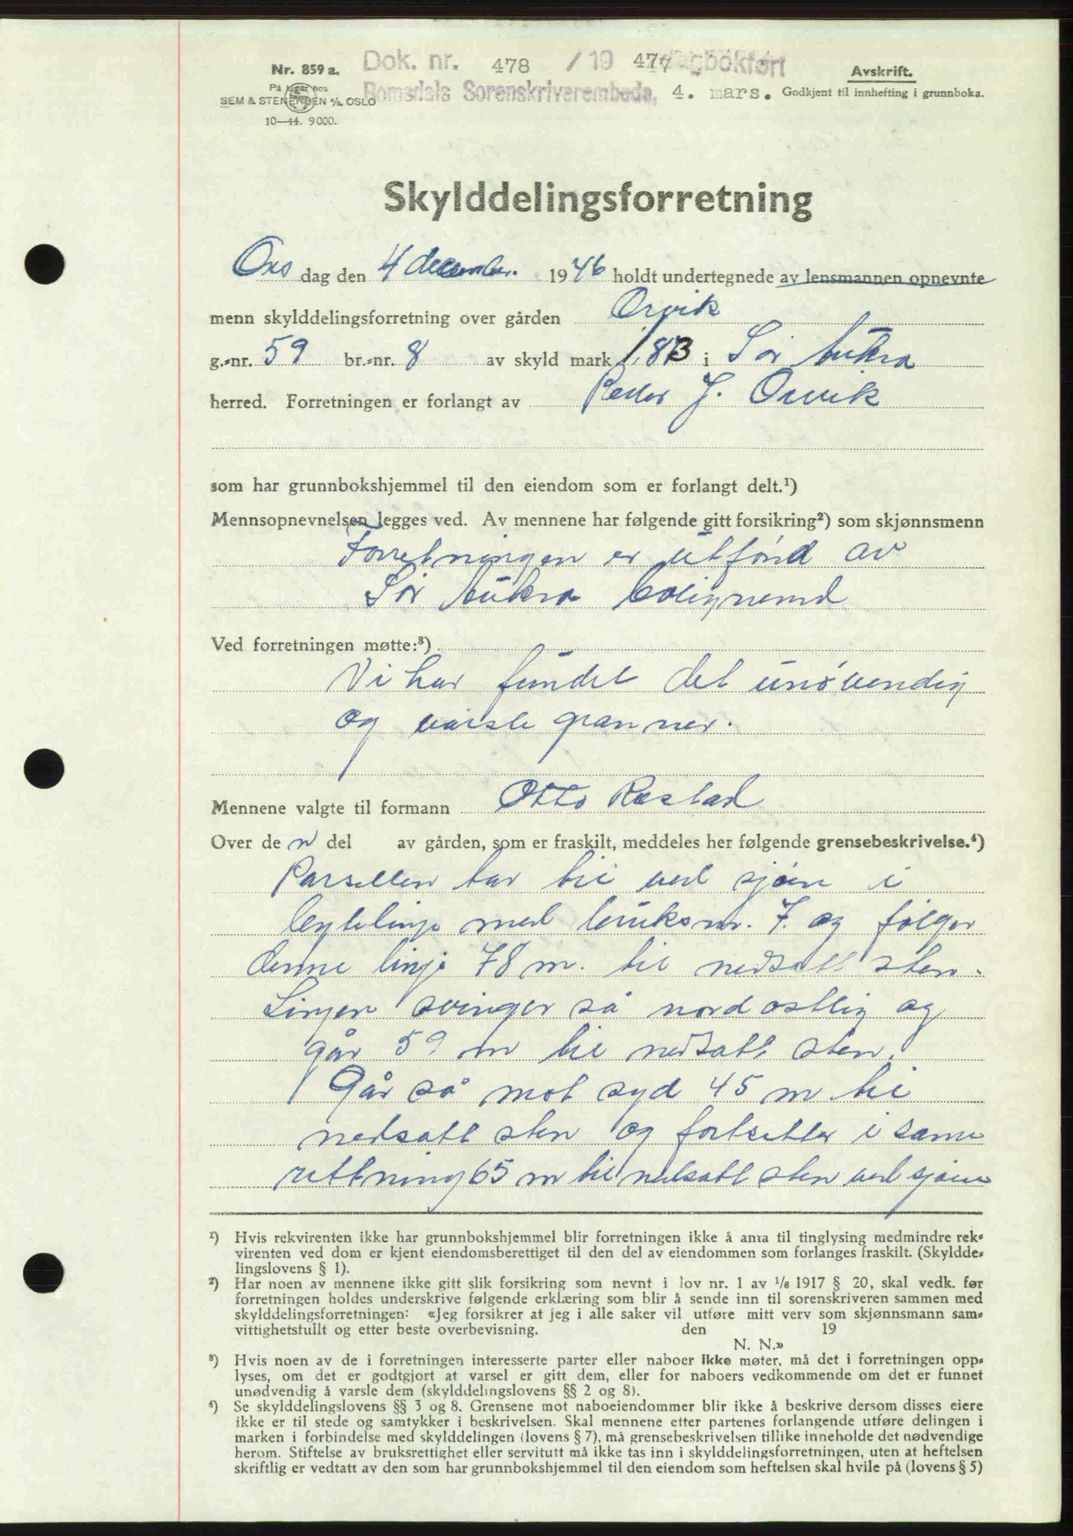 Nr. 859 a. Dok. nr. 478 / 19 47 dagbokført Avskrift.
På lager hos Romsdals Sorenskriverembede, 4. mars. Godkjent til innhefting i grunnboka.
SEM & STENERSEN A/S, OSLO
10—44. 9000.
Skylddelingsforretning
Ons dag den 4 december. 1946 holdt undertegnede av lensmannen opnevnte
menn skylddelingsforretning over gården Orvik
g.-nr. 59 br.-nr. 8 av skyld mark 1.83 i Sør Aukra
herred. Forretningen er forlangt av Peder J. Orvik
som har grunnbokshjemmel til den eiendom som er forlangt delt.¹)
Mennsopnevnelsen legges ved. Av mennene har følgende gitt forsikring²) som skjønnsmenn
Forretningen er utførd av
Sør Aukra bolignemd
Ved forretningen møtte:³)
Vi har fundet det unøvendig
og varsle granner.
Mennene valgte til formann Otto Røstad
Over de n del av gården, som er fraskilt, meddeles her følgende grensebeskrivelse.⁴)
Parsellen tar til ved sjøen i
bytelinje med bruksnr. 7. og følger
denne linje 78 m. til nedsatt sten.
Linjen svinger så nordostlig og
går 59 m til nedsatt sten.
Går så mot syd 45 m til
nedsatt sten og fortsetter i same
rettning 65 m til nedsatt sten ved sjøen
¹) Hvis rekvirenten ikke har grunnbokshjemmel blir forretningen ikke å anta til tinglysing medmindre rek-
virenten ved dom er kjent eiendomsberettiget til den del av eiendommen som forlanges fraskilt. (Skyldde-
lingslovens § 1).
²) Har noen av mennene ikke gitt slik forsikring som nevnt i lov nr. 1 av 1/6 1917 § 20, skal vedk. før
forretningen holdes underskrive følgende erklæring som blir å sende inn til sorenskriveren sammen med
skylddelingsforretningen: «Jeg forsikrer at jeg i alle saker vil utføre mitt verv som skjønnsmann sam-
vittighetsfullt og etter beste overbevisning. den 19
N. N.»
³) Hvis noen av de i forretningen interesserte parter eller naboer ikke møter, må det i forretningen opp-
lyses, om det er godtgjort at varsel er gitt dem, eller for naboers vedkommende om det er funnet
unødvendig å varsle dem (skylddelingslovens §§ 2 og 8).
⁴) Se skylddelingslovens §§ 3 og 8. Grensene mot naboeiendommer blir ikke å beskrive dersom disses eiere
ikke er til stede og samtykker i beskrivelsen. Skal mennene etter partenes forlangende utføre delingen i
marken i forbindelse med skylddelingen (lovens § 7), må grensebeskrivelsen tillike inneholde det nødvendige
herom. Stiftelse av bruksrettighet eller servitutt må ikke tas inn i skylddelingsforretningen, uten at heftelsen
skriftlig er vedtatt av den som har grunnbokshjemmel til den eiendom som heftelsen skal hvile på (lovens § 5)